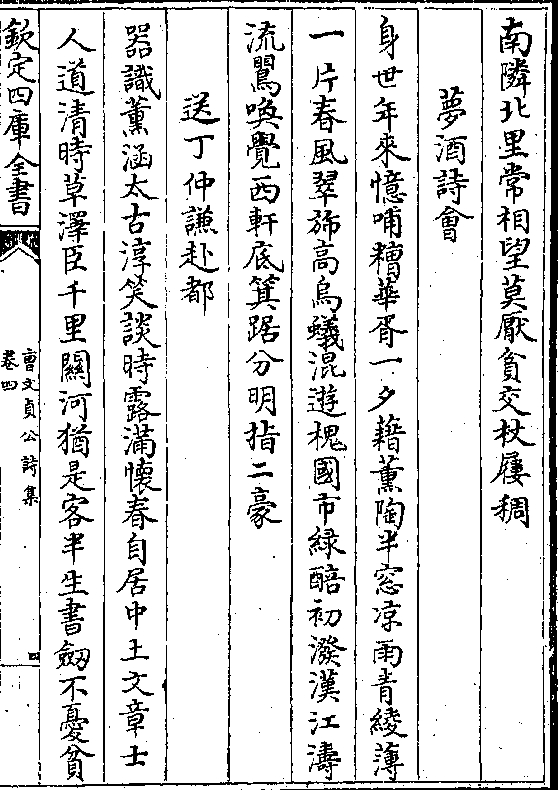 南隣北里常相望莫厭貧交杖屨稠
夢酒詩會
身世年來憶哺糟華胥一夕藉薰陶半窓凉雨青綾薄
一片春風翠斾高烏蟻混遊槐國市緑醅初潑漢江濤
流鶯喚覺西軒底箕踞分明指二豪
送丁仲謙赴都
器識薰涵太古淳笑談時露滿懷春自居中土文章士
人道清時草澤臣千里關河猶是客半生書劒不憂貧
欽定四庫全書
曹文貞公詩集
卷四
四